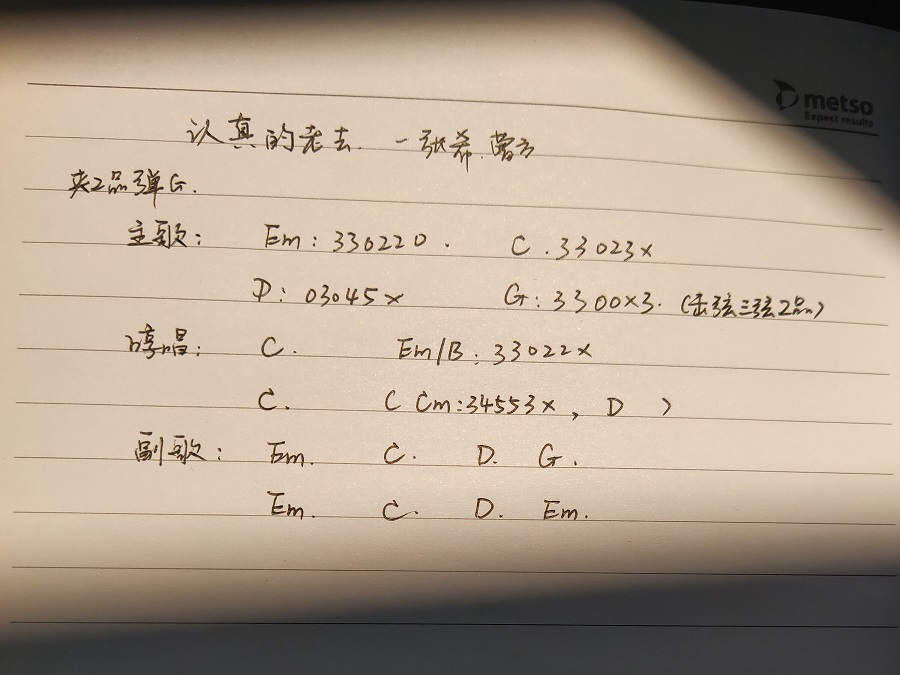 metso
Expect results
认真的老去. 一张希. 曹方
夹2品弹G.
主歌: Em: 330220. C. 33023x
D: 03045x G: 3300x3. (击弦三弦2品)
哼唱: C. Em/B: 33022x
C. C Cm:34553x, D )
副歌: Em. C. D. G.
Em. C. D. Em.